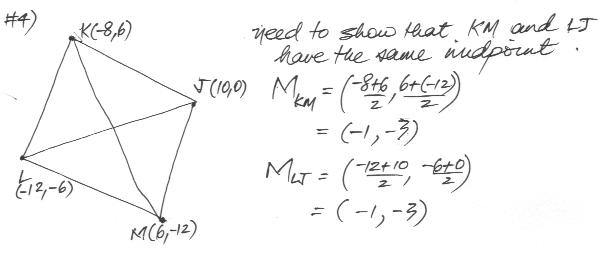 #4)
K(-8,6)
J(10,0)
L
(-12,-6)
M(6,-12)
need to show that KM and LJ
have the same midpoint.
M_KM = (-8+6/2, 6+(-12)/2)
= (-1,-3)
M_LJ = (-12+10/2, -6+0/2)
= (-1,-3)